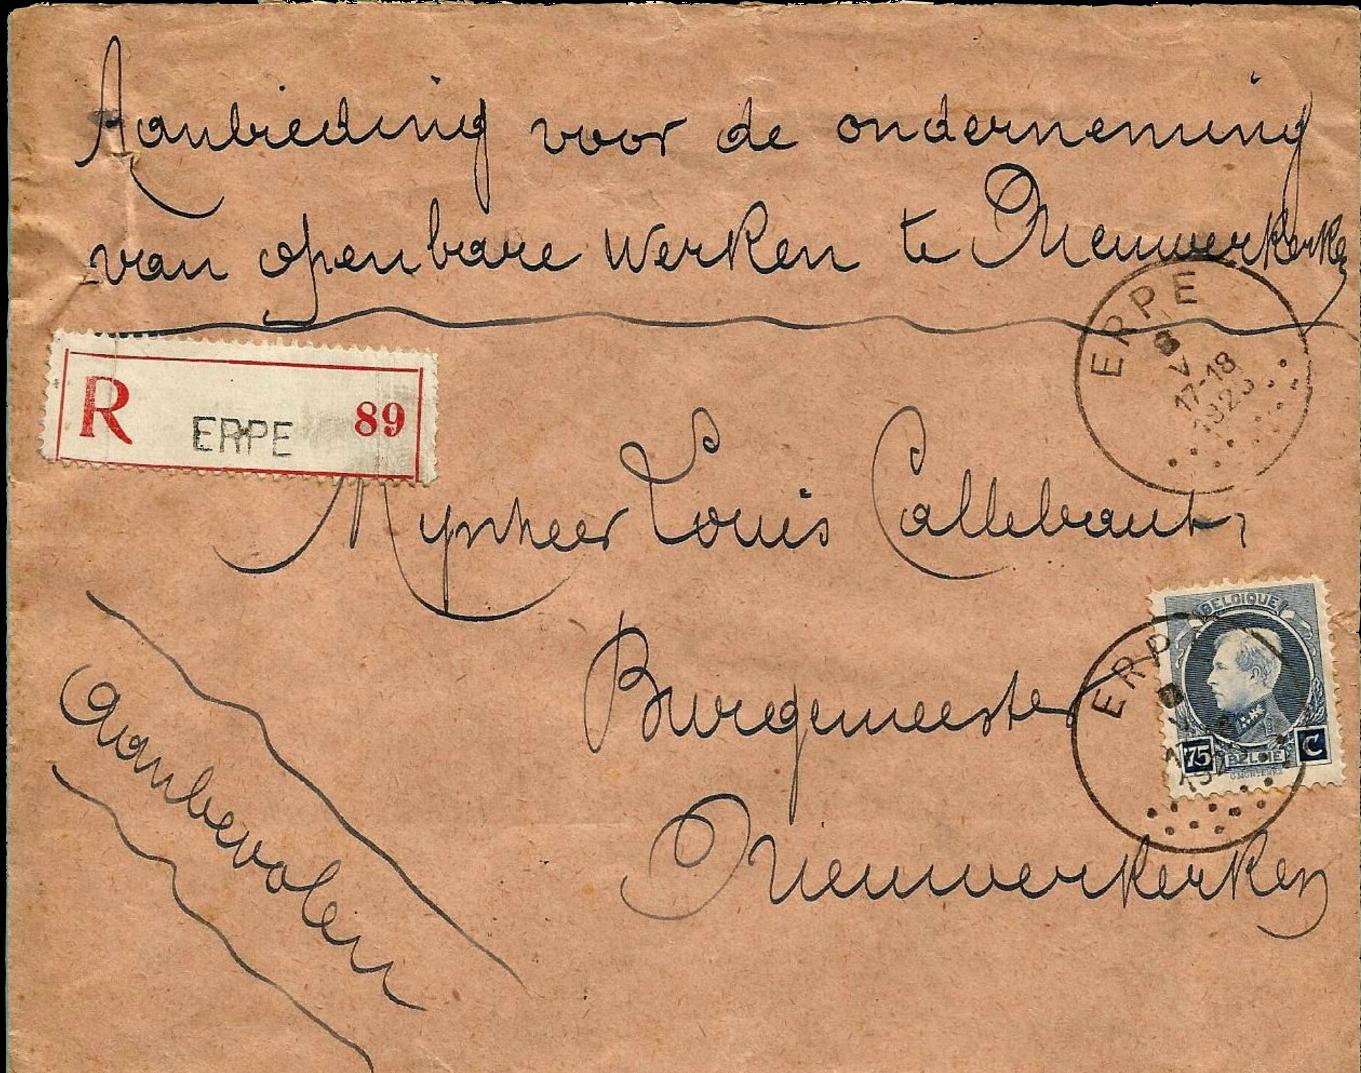 Aanbieding voor de onderneming
van openbare werken te Nieuwerkerken
ERPE
V
17-18
1923
R ERPE 89
Mynheer Louis Callebaut,
BELGIQUE
Burgemeester
ERP
75 BELGIE C
Aanbevolen
Nieuwerkerken